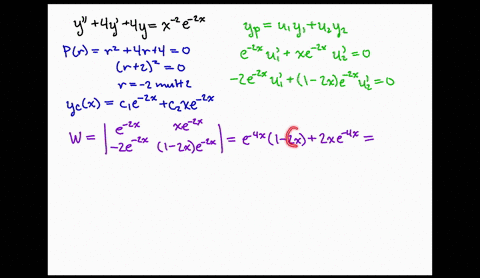 y'' + 4y' + 4y = x⁻² e⁻²ˣ
P(r) = r² + 4r + 4 = 0
(r+2)² = 0
r = -2 mult 2
y_c(x) = c₁e⁻²ˣ + c₂xe⁻²ˣ
y_p = u₁y₁ + u₂y₂
e⁻²ˣ u₁' + xe⁻²ˣ u₂' = 0
-2e⁻²ˣ u₁' + (1-2x)e⁻²ˣ u₂' = 0
W = | e⁻²ˣ xe⁻²ˣ |
| -2e⁻²ˣ (1-2x)e⁻²ˣ | = e⁻⁴ˣ(1-2x) + 2xe⁻⁴ˣ =